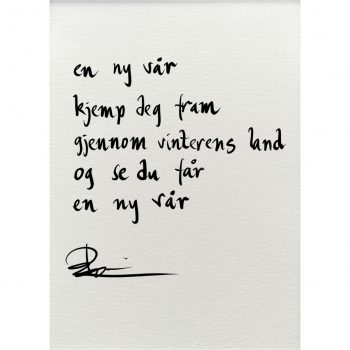 en ny vår
kjemp deg fram
gjennom vinterens land
og se du får
en ny vår